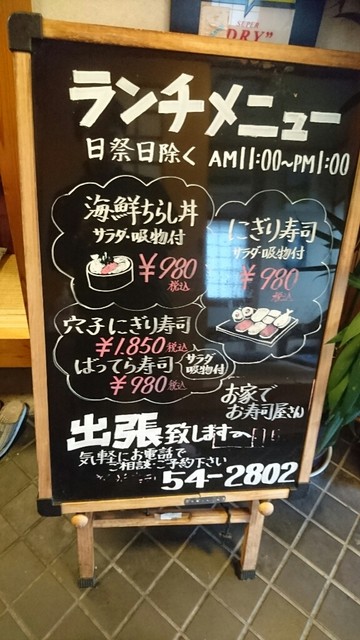 SUPER
"DRY"
ランチメニュー
日祭日除く AM11:00~PM1:00
海鮮ちらし丼
サラダ・吸物付
¥980
税込
にぎり寿司
サラダ・吸物付
¥980
税込
穴子にぎり寿司
¥1.850税込
ばってら寿司
¥980税込
サラダ
吸物付
お家で
お寿司屋さん
出張致します
気軽にお電話で
ご相談・ご予約下さい
54-2802